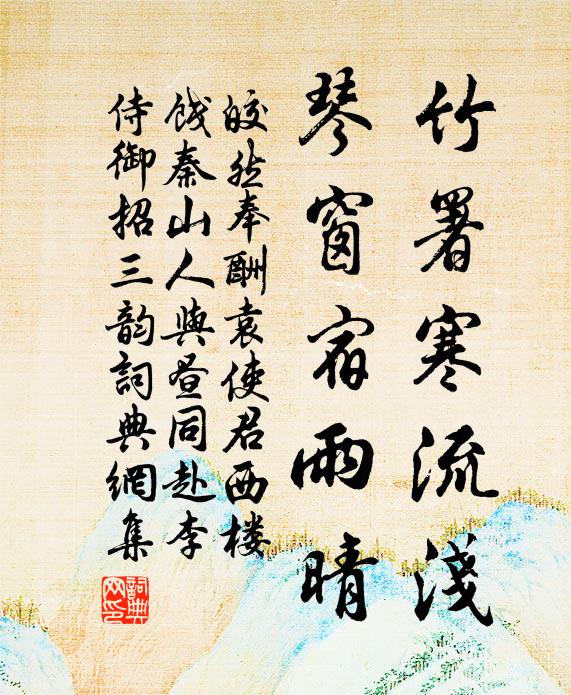 竹署寒流淺
琴窗宿雨晴
皎然奉酬袁使君西楼
餞秦山人與昼同赴李
侍御招三韵詞典網集
詞典
网印